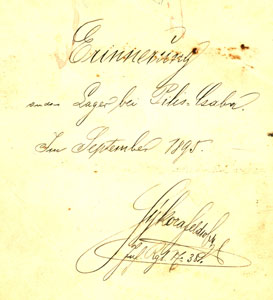 Erinnerung
an den Lager bei Pilis-Csaba.
Im September 1895.